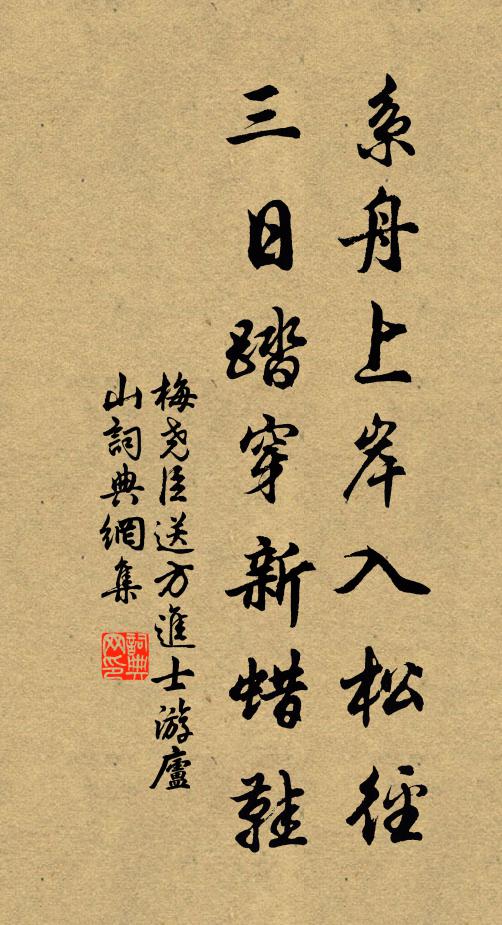 系舟上岸入松徑
三日踏穿新蜡鞋
梅堯臣送方進士游廬
山詞典網集
詞典网印